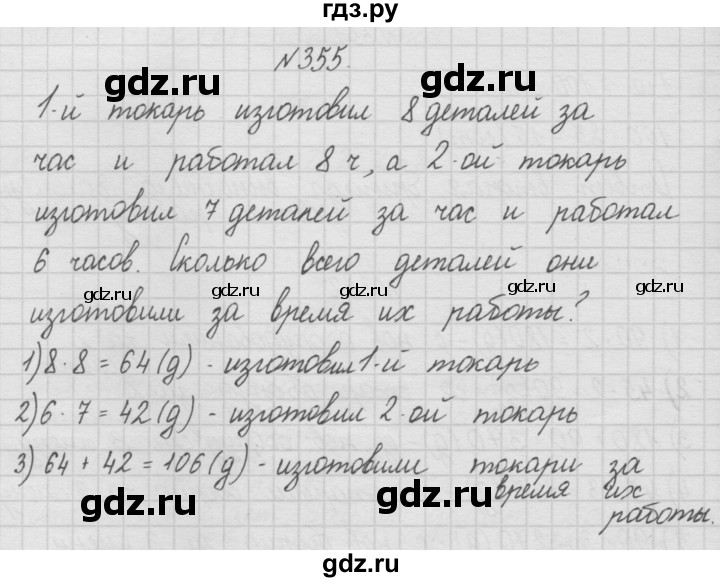 гдз.ру
№355.
gdz.ru gdz.ru
1-й токарь изготовил 8 деталей за
час и работал 8 ч, а 2-ой токарь
изготовил 7 деталей за час и работал
6 часов. Сколько всего деталей они
gdz.ru gdz.ru gdz.ru gdz.ru
изготовили за время их работы?
1) 8·8=64(д) - изготовил 1-й токарь
2) 6·7=42(д) - изготовил 2-ой токарь
3) 64+42=106(д) - изготовили токари за
время их
gdz.ru gdz.ru
работы.
gdz.ru